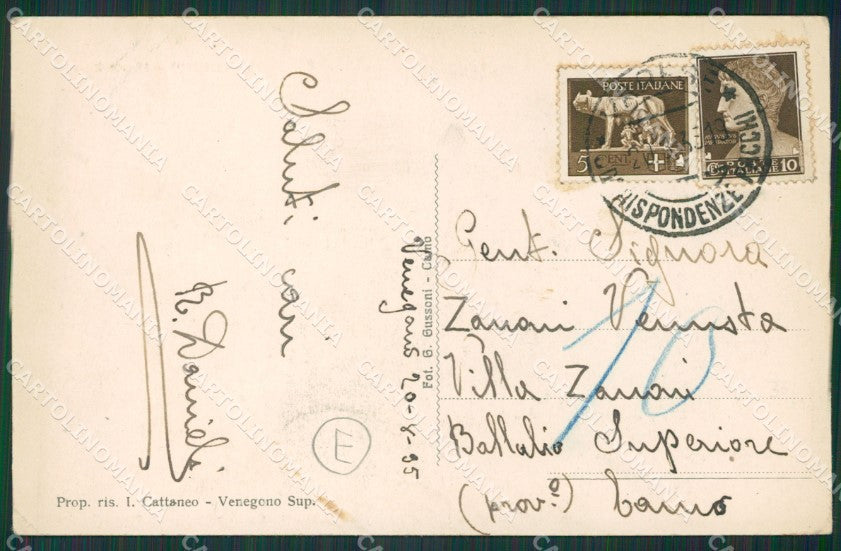 Saluti cari
R. Danieli
Venegono 20-8-35
Fot. G. Gussoni - Como
Prop. ris. I. Cattaneo - Venegono Sup.
E
POSTE ITALIANE
5 CENT.
POSTE ITALIANE 10
CORRISPONDENZE PACCHI
Gent. Signora
Zanoni Venusta
Villa Zanoni
Ballabio Superiore
(prov.º) Como
10
CARTOLINOMANIA